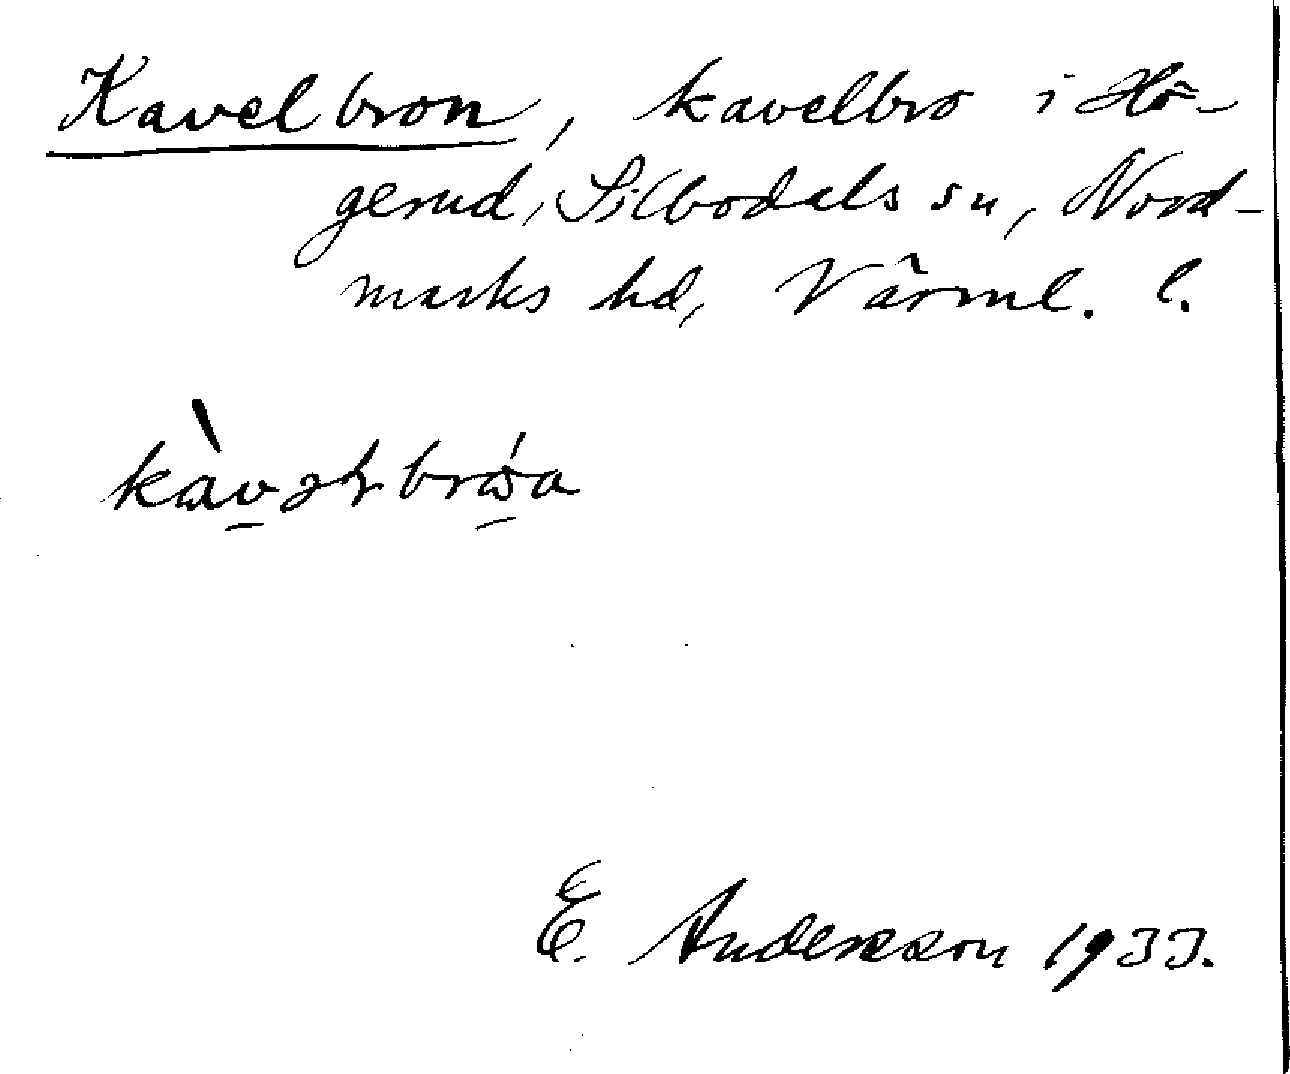 Kavelbron, kavelbro i Hö-
gerud, Silbodals sn, Nord-
marks hd, Värml. l.
E. Andersson 1933.